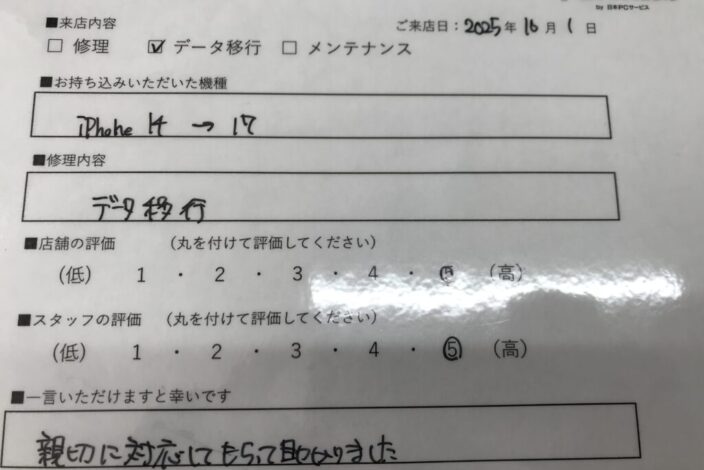 by 日本PCサービス
■来店内容
ご来店日：2025年10月1日
□ 修理 ☑ データ移行 □ メンテナンス
■お持ち込みいただいた機種
iPhone 14 → 17
■修理内容
データ移行
■店舗の評価 （丸を付けて評価してください）
（低） 1 ・ 2 ・ 3 ・ 4 ・ 5 （高）
■スタッフの評価 （丸を付けて評価してください）
（低） 1 ・ 2 ・ 3 ・ 4 ・ 5 （高）
■一言いただけますと幸いです
親切に対応してもらって助かりました